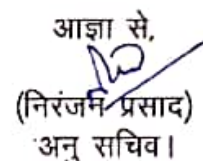 आज्ञा से,
(निरंजन प्रसाद)
अनु सचिव।